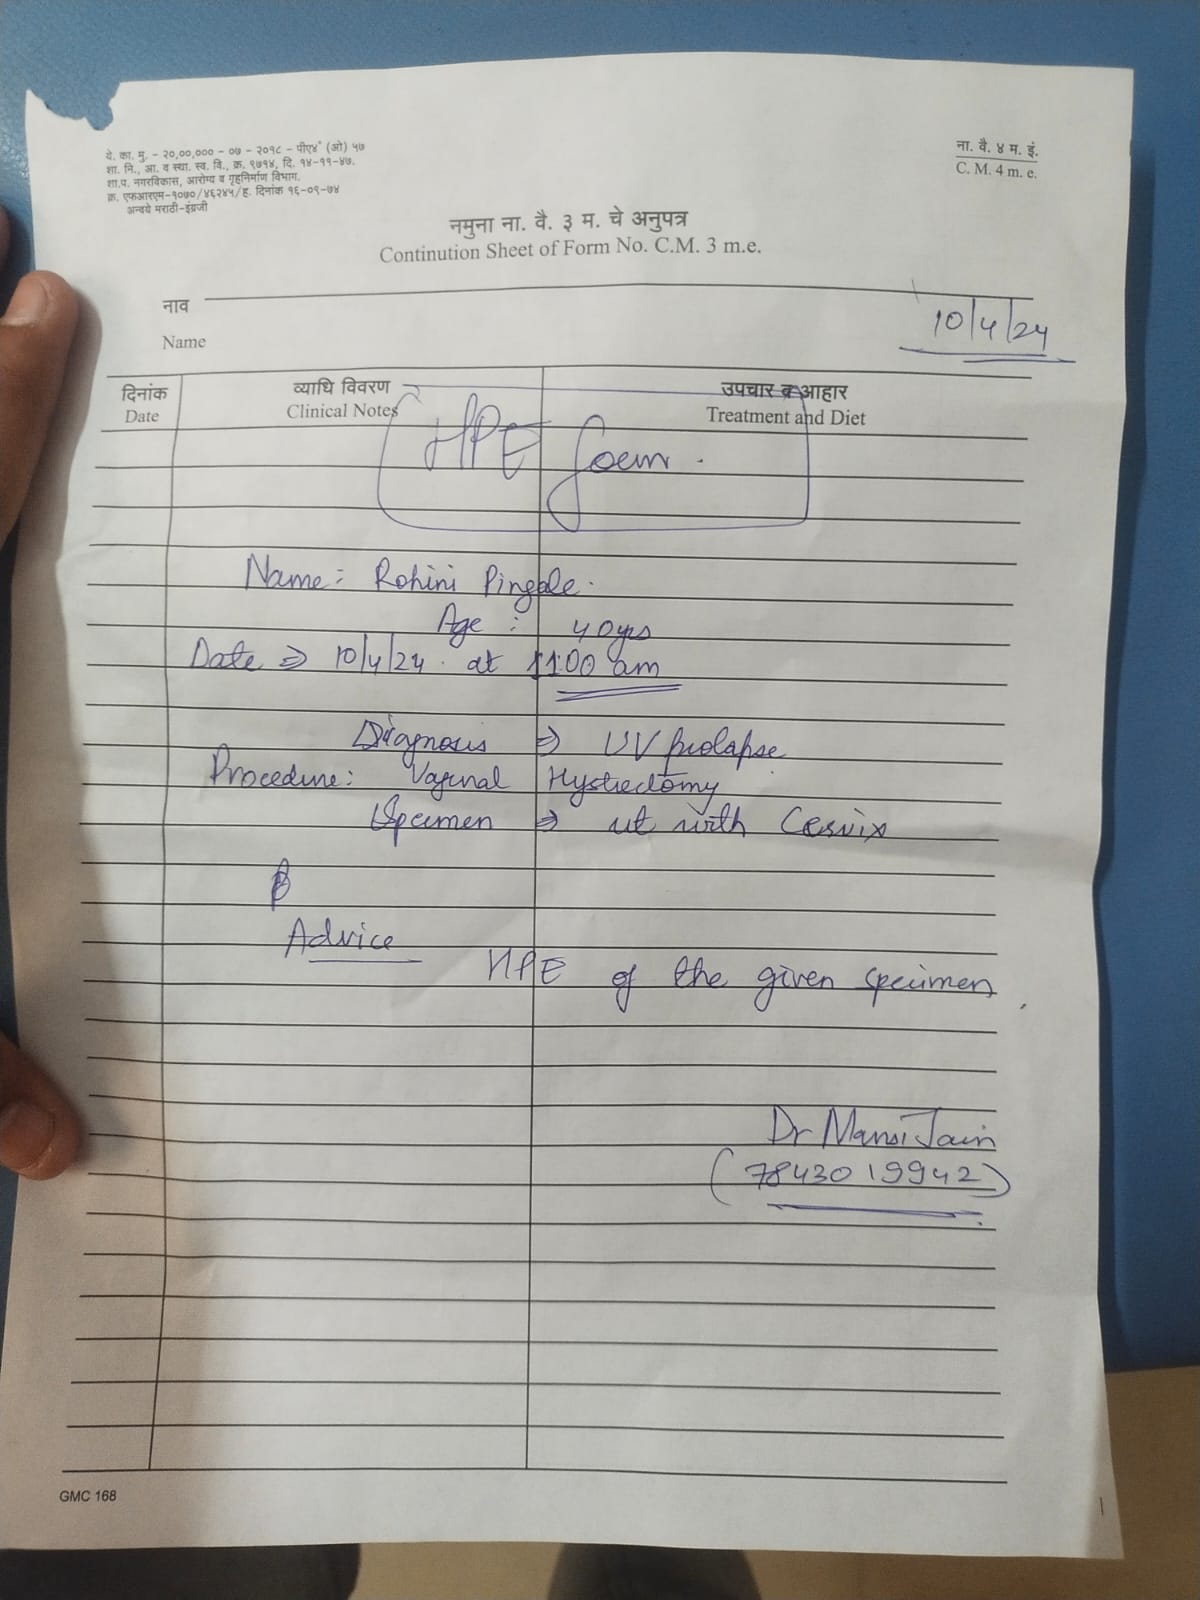 ये. का. मु. - २०,००,००० - ०७ - २०१८ - पीए४* (ओ) ५७
शा. नि., आ. व स्था. स्व. वि., क्र. ९७१४, दि. १४-११-४७.
शा.प. नगरविकास, आरोग्य व गृहनिर्माण विभाग.
क्र. एफआरएम-१०७०/४६२४५/ह. दिनांक १६-०९-७४
अन्वये मराठी-इंग्रजी
ना. वै. ४ म. इं.
C. M. 4 m. e.
नमुना ना. वै. ३ म. चे अनुपत्र
Continution Sheet of Form No. C.M. 3 m.e.
नाव
Name
10/4/24
दिनांक व्याधि विवरण उपचार व आहार
Date Clinical Notes Treatment and Diet
HPE form.
Name: Rohini Pingale.
Age : 40yrs
Date ⇒ 10/4/24. at 11:00 am
Diagnosis ⇒ UV prolapse
Procedure: Vaginal Hystrectomy
Specimen ⇒ ut with Cervix
Advice
HPE of the given specimen.
Dr Mansi Jain
(7843019942)
GMC 168